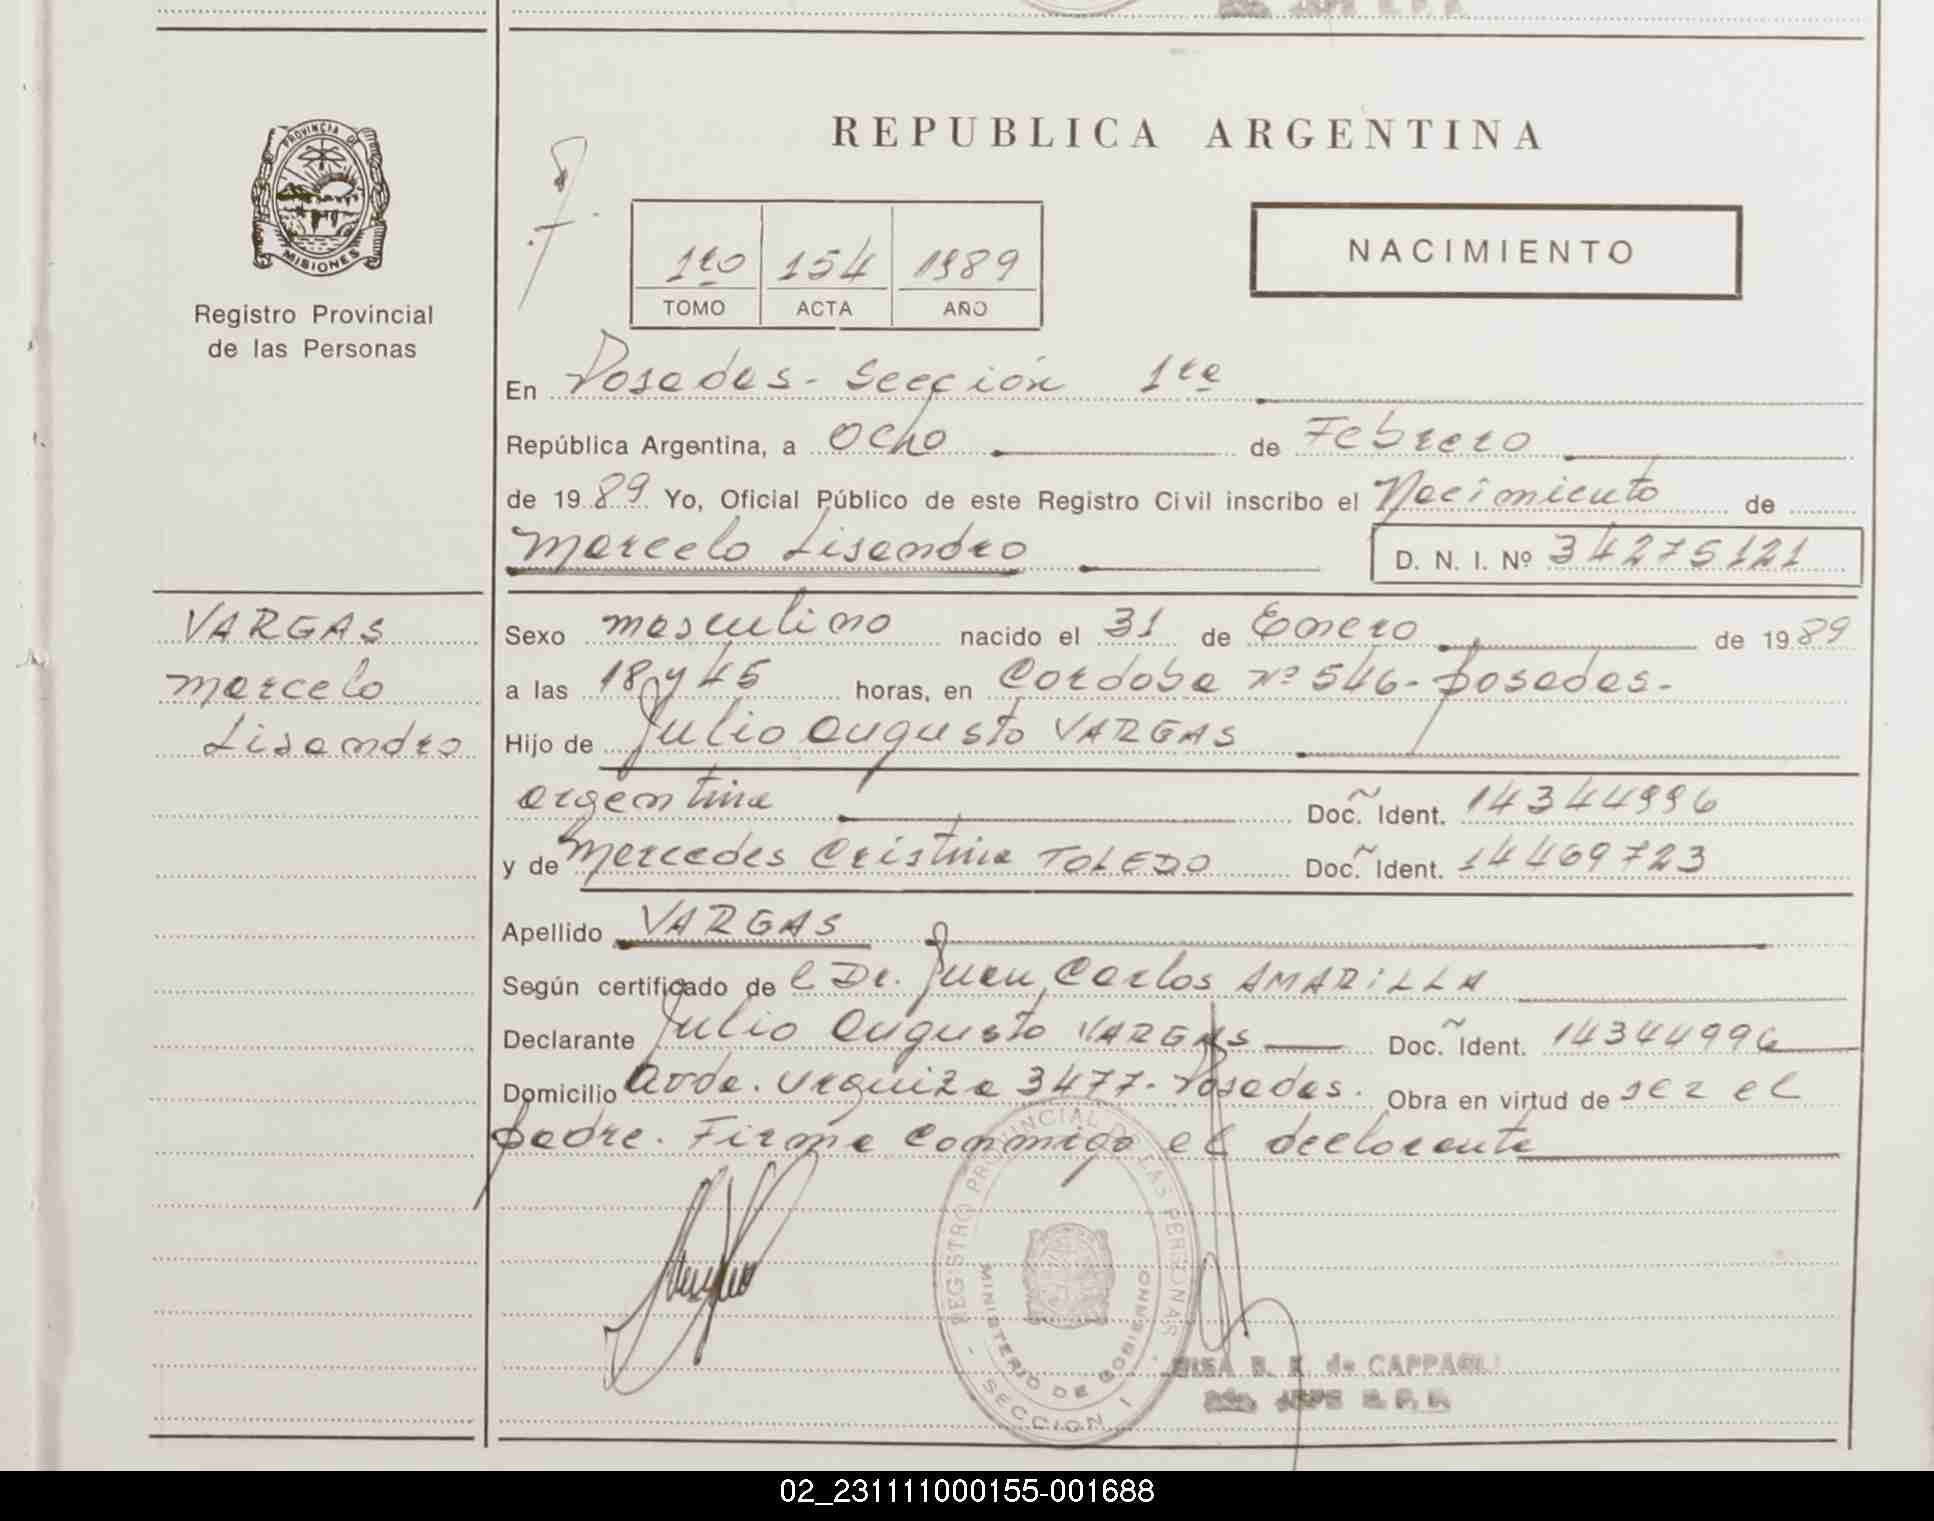 PROVINCIA DE
MISIONES
Registro Provincial
de las Personas
VARGAS
Marcelo
Lisandro
REPUBLICA ARGENTINA
1ro 154 1989
TOMO ACTA AÑO
NACIMIENTO
En Posadas - Sección 1ra
República Argentina, a Ocho de Febrero
de 1989 Yo, Oficial Público de este Registro Civil inscribo el Nacimiento de
Marcelo Lisandro D. N. I. Nº 34275121
Sexo masculino nacido el 31 de Enero de 1989
a las 18 y 45 horas, en Cordoba nº 546 - Posadas -
Hijo de Julio Augusto VARGAS
argentina Doc. Ident. 14344996
y de Mercedes Cristina TOLEDO Doc. Ident. 14469723
Apellido VARGAS
Según certificado de l Dr. Juan Carlos AMARILLA
Declarante Julio Augusto VARGAS Doc. Ident. 14344996
Domicilio Avda. Urquiza 3477 - Posadas. Obra en virtud de ser el
padre. Firma conmigo el declarante
REGISTRO PROVINCIAL DE LAS PERSONAS
MINISTERIO DE GOBIERNO
SECCION 1
de CAPPAGLI
02_231111000155-001688